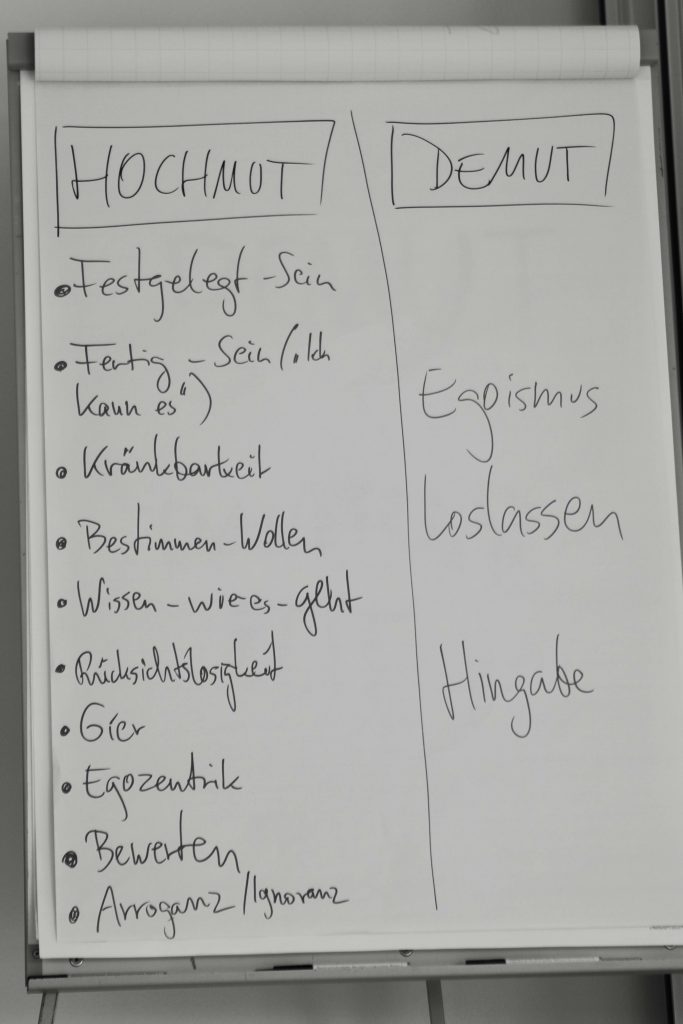 HOCHMUT
• Festgelegt-Sein
• Fertig-Sein („Ich
kann es“)
• Kränkbarkeit
• Bestimmen-Wollen
• Wissen-wie-es-geht
• Rücksichtslosigkeit
• Gier
• Egozentrik
• Bewerten
• Arroganz/Ignoranz
DEMUT
Egoismus
loslassen
Hingabe